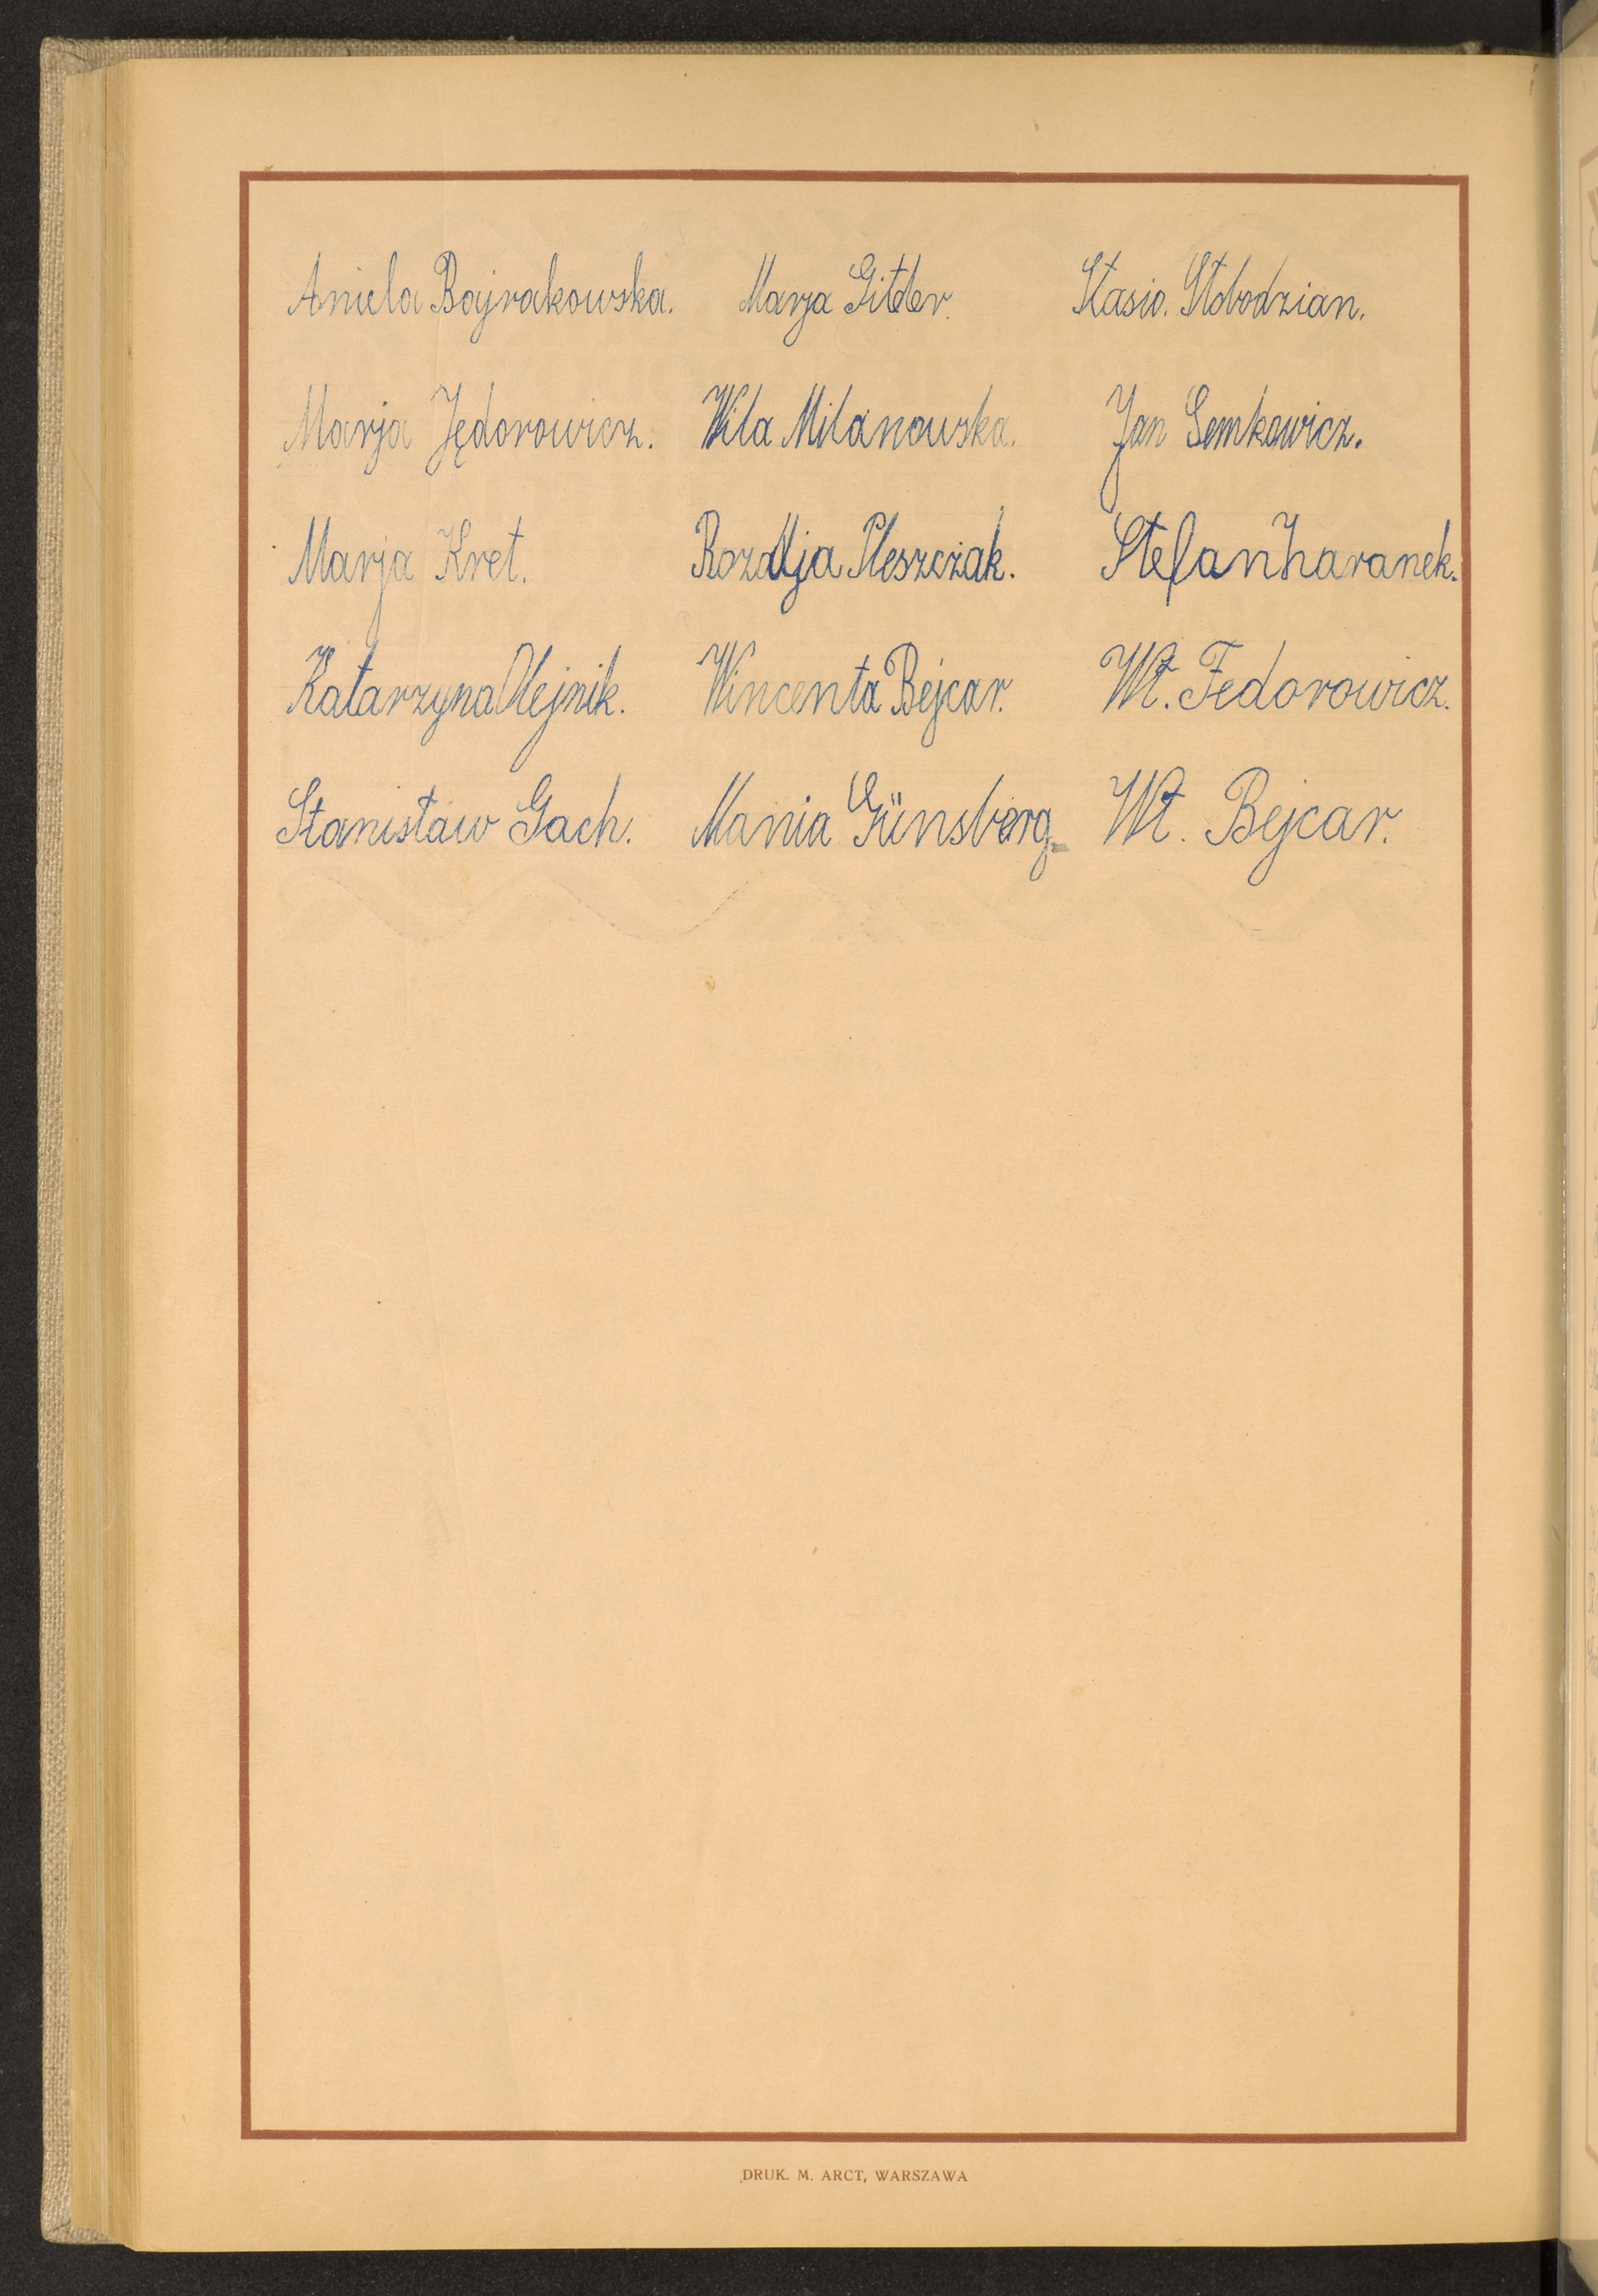 Aniela Bajrakowska. Marja Gitder. Stasio. Słobodzian.
Marja Jędorowicz. Wila Milanowska. Jan Semkowicz.
Marja Kret. Rozalja Pleszczak. Stefan haranek.
Katarzyna Olejnik. Wincenta Bejcar. Wł. Fedorowicz.
Stanisław Gach. Mania Günsberg. Wł. Bejcar.
DRUK. M. ARCT, WARSZAWA